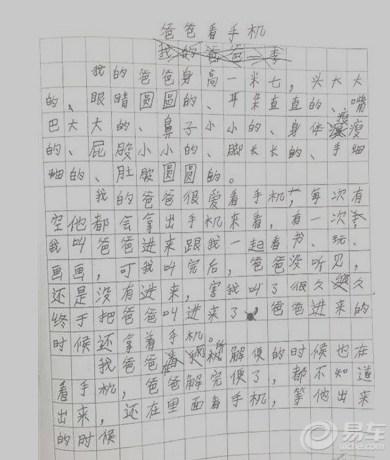 爸爸看手机
我的爸爸身高一米七,头大大
的、眼睛圆圆的、耳朵直直的、嘴
巴大大的、鼻子小小的、身体瘦瘦
的、屁股小小的、脚长长的、手细
细的、肚皮圆圆的。
我的爸爸很爱看手机,每次有
空他都会拿出手机来看,有一次
我叫爸爸进来跟我一起看书、玩、
画画,可我叫完后,爸爸没听见,
还是没有进来,害我叫了很久久
终于把爸爸叫进来了,爸爸进来的
时候还拿着手机。
我爸爸解便的时候也在
看手机,爸爸解完便了,都不知道
出来,还在里面看手机,等他出来
的时候
易车